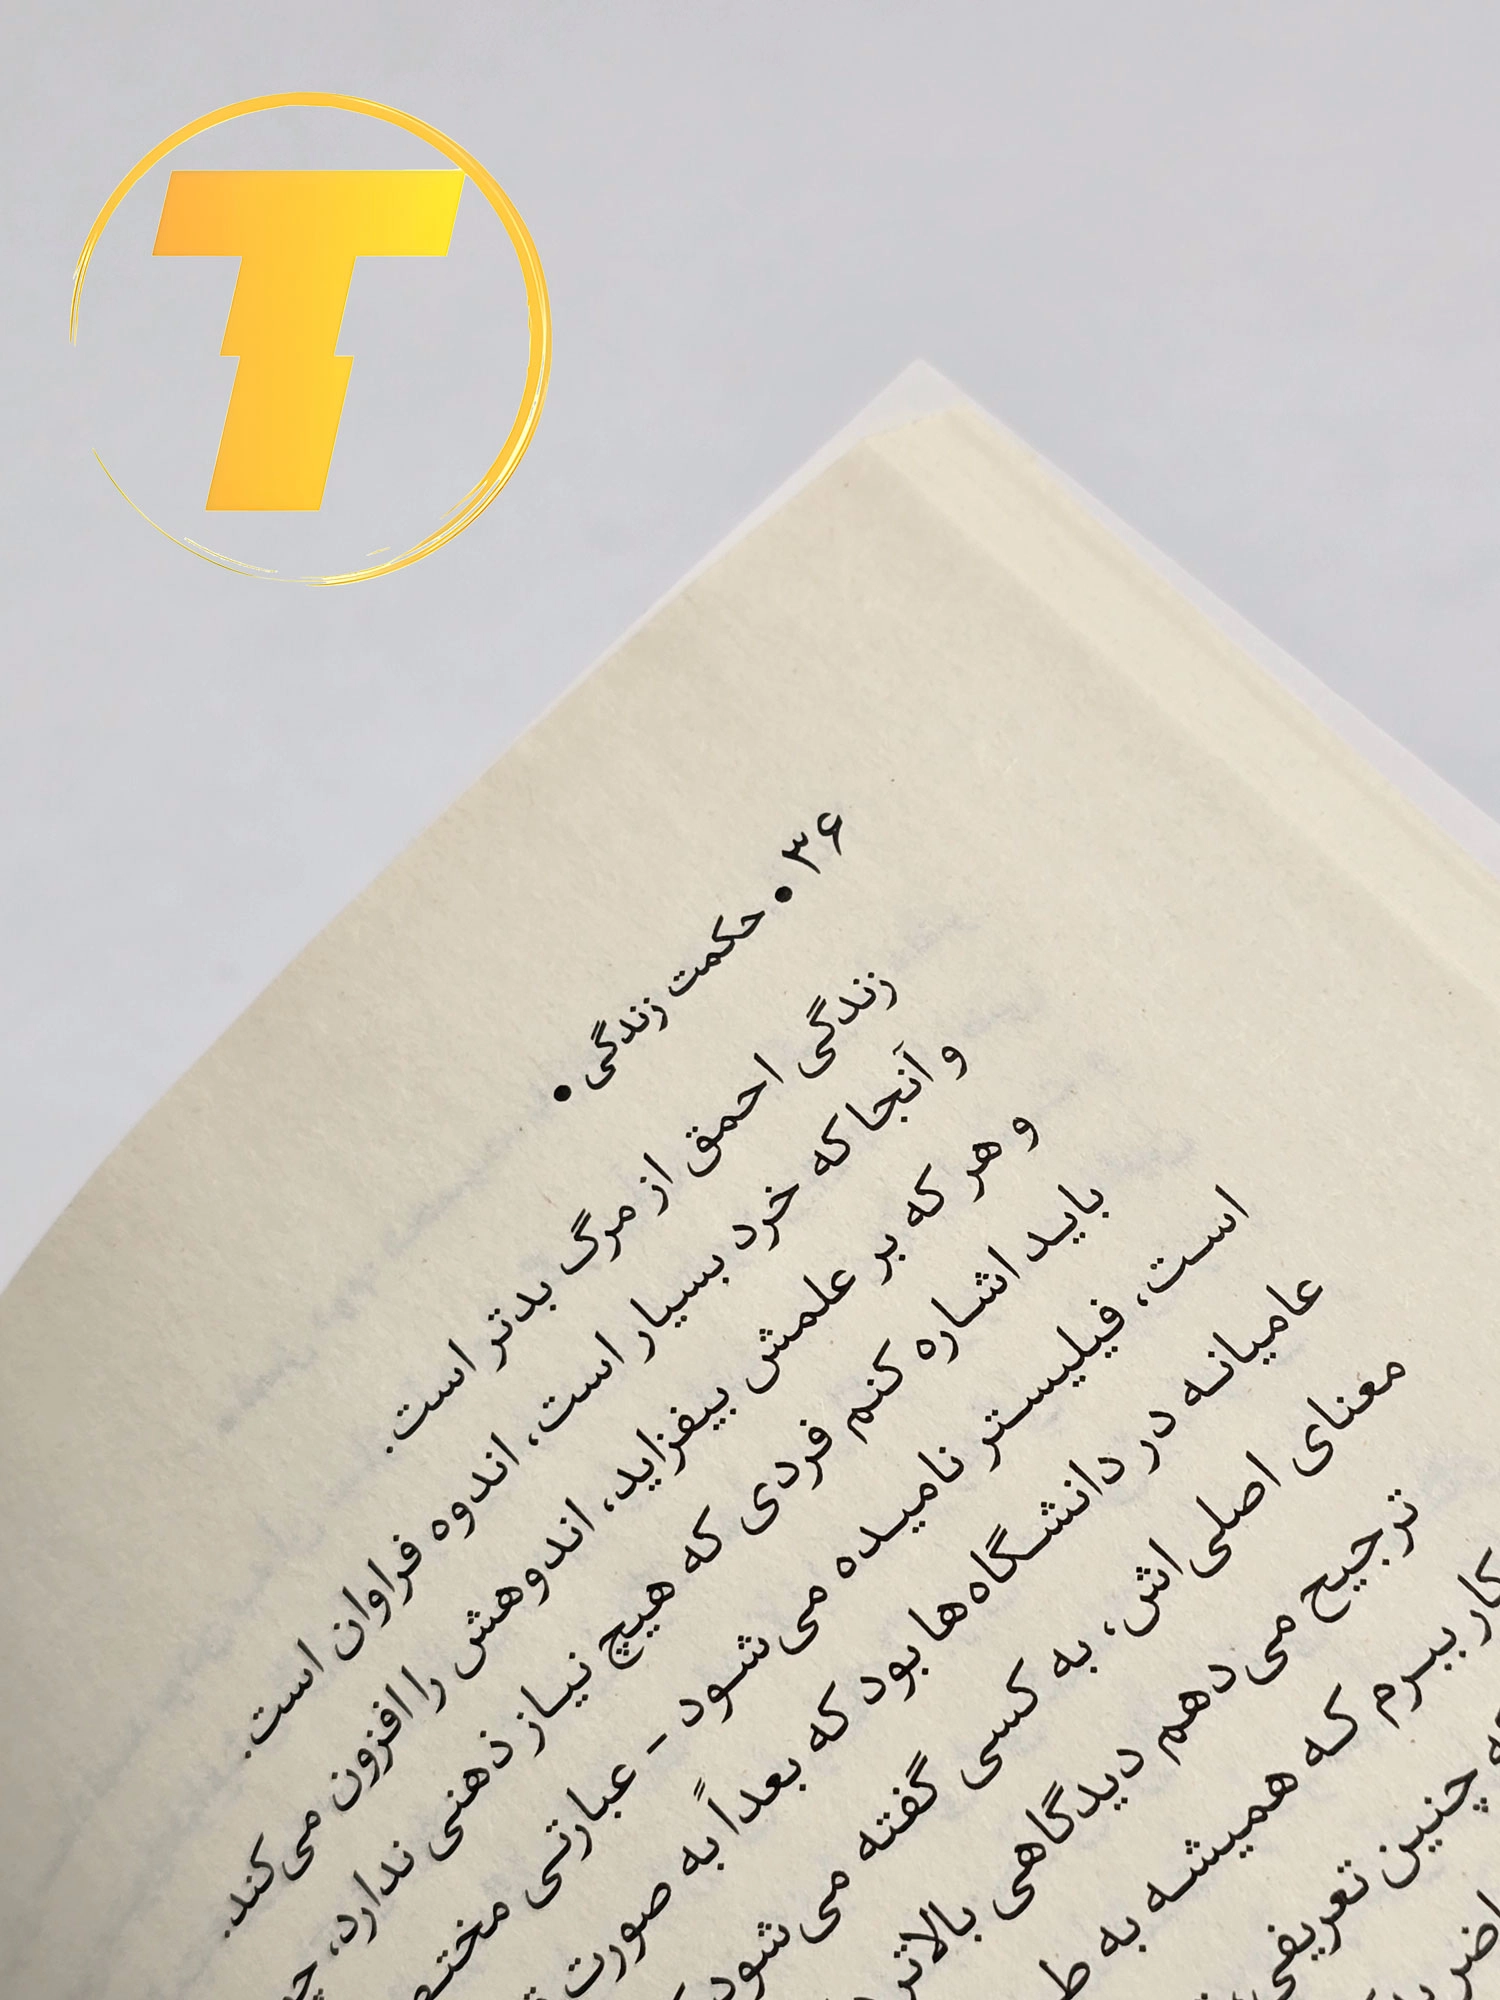 T
۳۶ • حکمت زندگی •
زندگی احمق از مرگ بدتر است.
و آنجا که خرد بسیار است، اندوه فراوان است.
و هر که بر علمش بیفزاید، اندوهش را افزون می‌کند.
باید اشاره کنم فردی که هیچ نیاز ذهنی ندارد،
است، فیلیستر نامیده می‌شود - عبارتی
عامیانه در دانشگاه‌ها بود که بعداً به صورت
معنای اصلی‌اش، به کسی گفته می‌شود
ترجیح می‌دهم دیدگاهی بالاتر
کار ببرم که همیشه به
چنین تعریفی